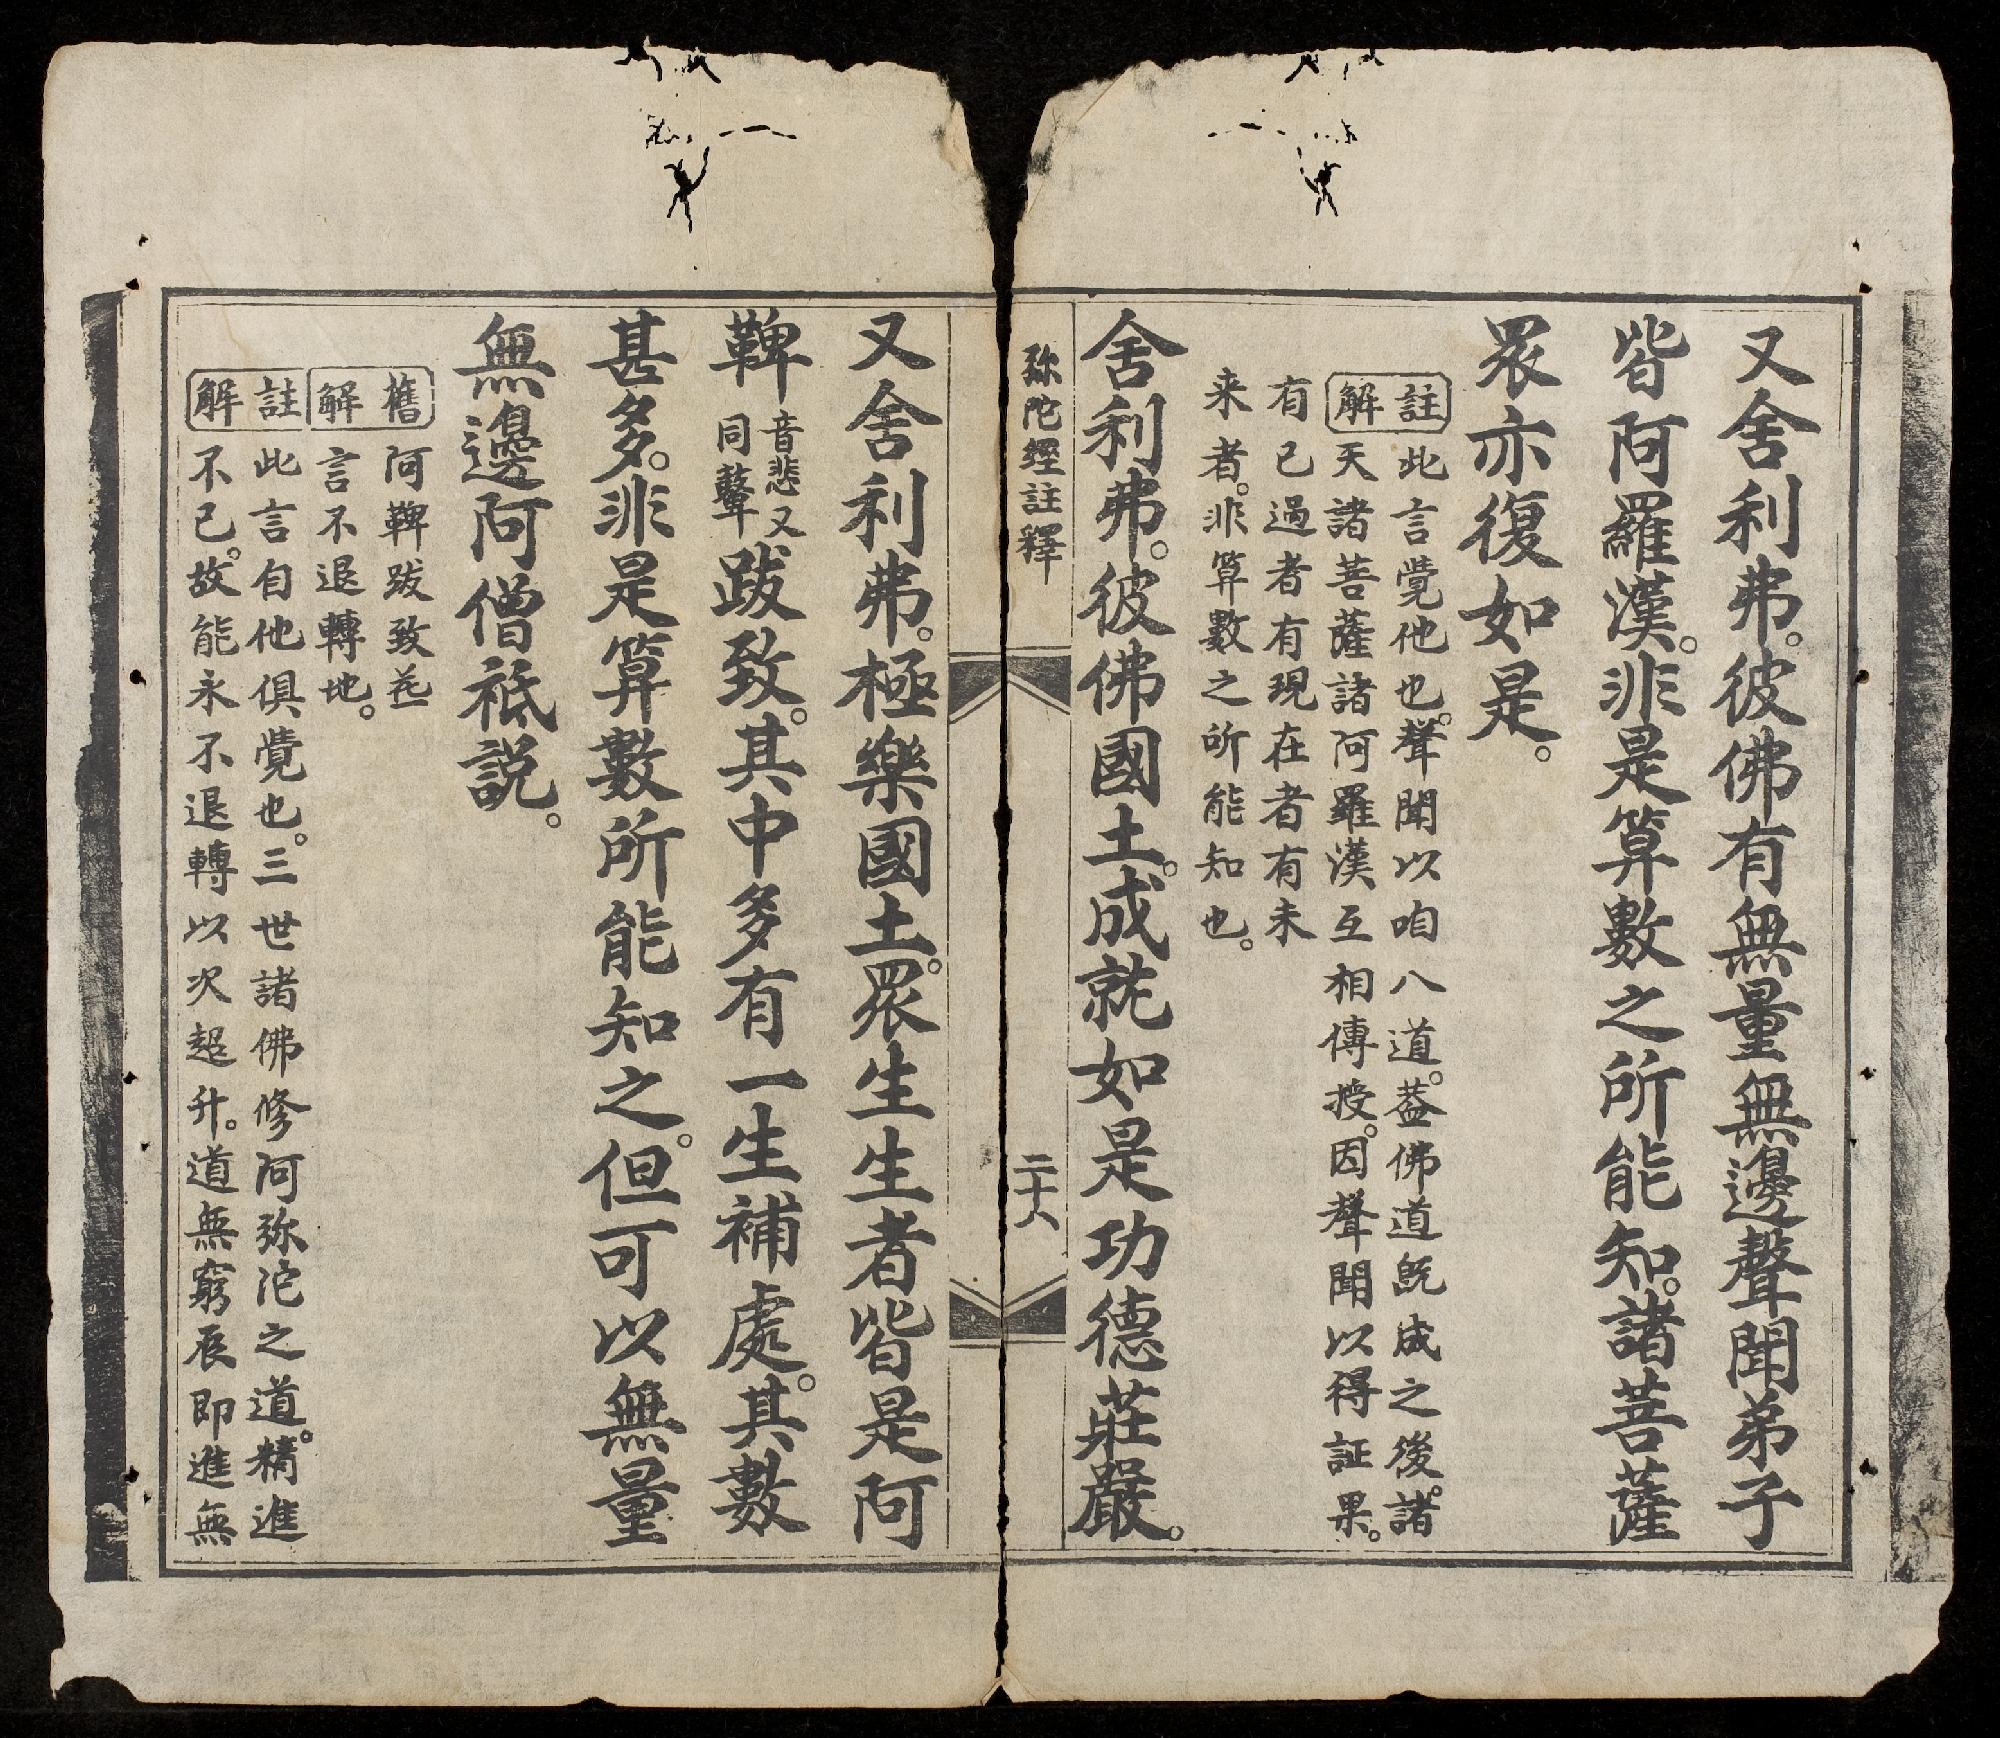 又舍利弗。彼佛有無量無邊聲聞弟子
皆阿羅漢。非是算數之所能知。諸菩薩
眾亦復如是。
註解
此言覺他也。聲聞以咱八道。蓋佛道既成之後。諸
天諸菩薩諸阿羅漢互相傳授。因聲聞以得証果。
有已過者有現在者有未
来者。非算數之所能知也。
舍利弗。彼佛國土。成就如是功德莊嚴。
弥陀經註釋
二十八
又舍利弗。極樂國土。眾生生者皆是阿
鞞音悲又同鼙跋致。其中多有一生補處。其數
甚多。非是算數所能知之。但可以無量
無邊阿僧祇說。
舊解
阿鞞跋致荘
言不退轉地。
註解
此言自他俱覺也。三世諸佛修阿弥陀之道。精進
不已。故能永不退轉以次超升。道無窮辰即進無